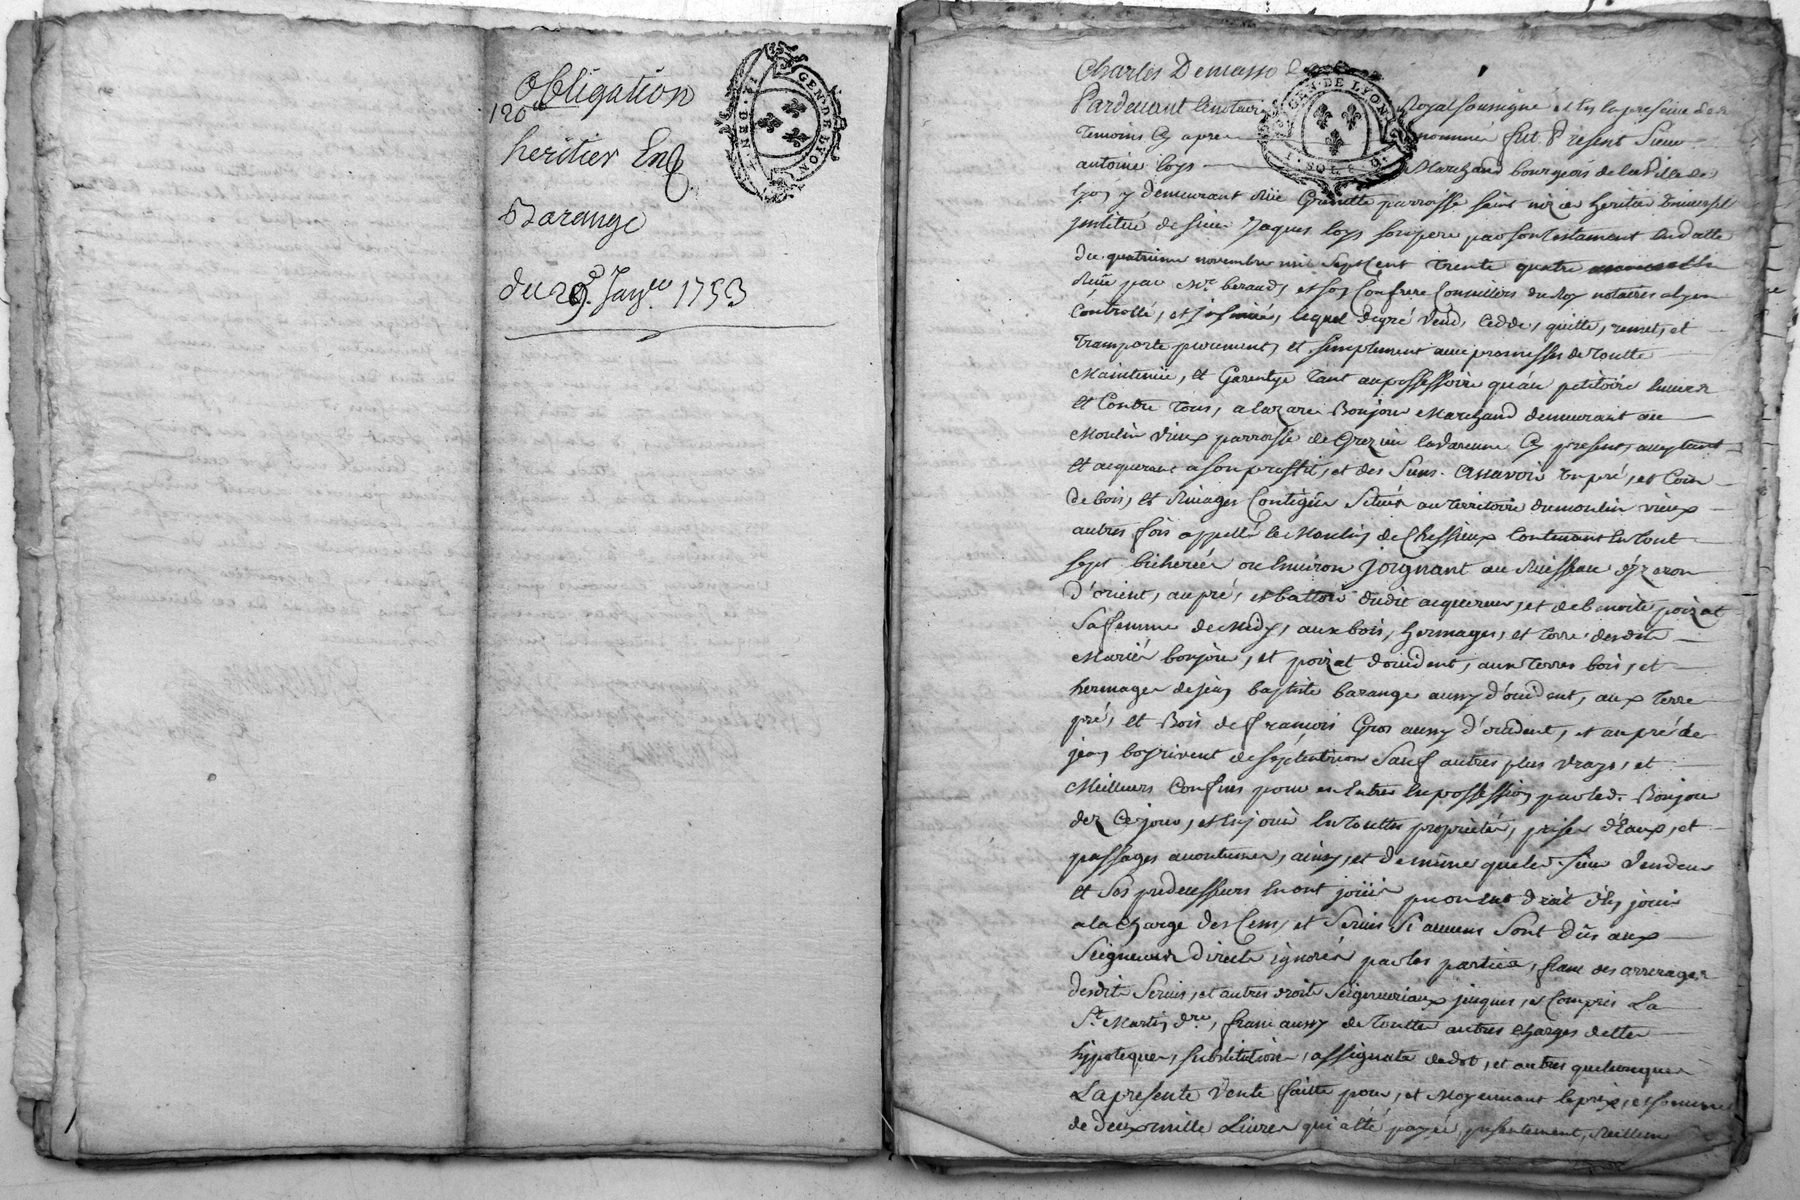 Obligation
120ᵗᵗ
heritier
Barange
du 29e Janer 1753
GEN. DE LYON
Charles Demasso
Pardevant le notaire Royal soussigné et en la presence des
temoins cy apres nommé fut Present Sieur
antoine loys Marchand bourgeois de la Ville de
lyon y demeurant Rüe Grenette parroisse saint nizier heritier universel
institué de sieur Jaques loys son pere par son testament en datte
du quatrieme novembre mil sept Cent trente quatre
Reçu par Mr. beraud, et son Confrere Conseillers du Roy notaires a lyon
Controllé, et insinué, lequel degré Vend, Cedde, quitte, remet, et
transporte purement, et simplement avec promesses de toutte
Maintenüe, et Garentye tant au possessoire qu'au petitoire envers
et Contre tous, a lazare Bonjour Marchand demeurant au
Moulin vieux parroisse de Grezieu lavarenne Cy present, acceptant
et acquerant a son proffit, et des siens. Assavoir un pré, et Coin
de bois, et Rivages Contigüs Situés au territoire du moulin vieux
autres fois appellé le Moulin de Chessieux Contenant en tout
sept bicherées ou environ joignant au Ruisseau d'yzeron
d'orient, au pré, et battoir dudit acquereur, et de benoite poizat
sa femme de Midy, aux bois, hermages, et terre desdits
Mariés bonjour, et poizat d'occident, aux terres bois, et
hermages de jean baptiste barange aussy d'occident, aux terre
pré, et Bois de francois Gros aussy d'occident, et au pré de
jean boyrivent de septentrion Sauf autres plus vrays, et
Meilleurs Confins pour en entrer en possession par led. Bonjour
dez Cejour, et en jouir en touttes proprietés, prises d'Eaux, et
passages accoutumés, ainsy, et de même que led. sieur Vendeur
et Ses predecesseurs en ont joüi ou ont eu droit d'en jouir
a la Charge des Cens, et Servis Si aucuns Sont dûs aux
Seigneurs Directs ignorés par les parties, franc des arrerages
desdits Servis, et autres droits Seigneuriaux jusques, et Compris La
St. Martin dre, franc aussy de toutte autres charges dettes
hypoteques, substitution, assignats de dot, et autres quelconques
La presente Vente faitte pour, et Moyennant le prix, et somme
de deux mille Livres qui a été payée presentement, reellem